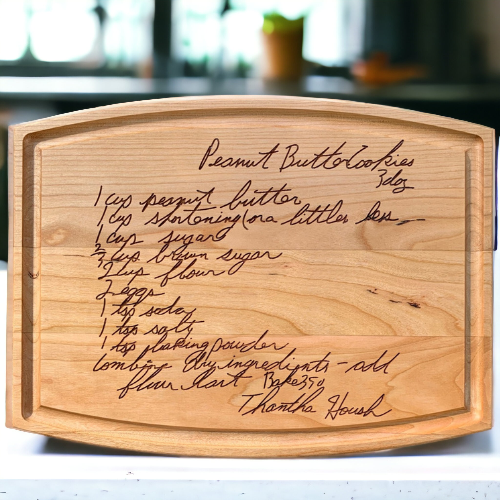 Peanut Butter Cookies
3 doz
1 cup peanut butter
1 cup shortening (or a little less
1 cup sugar
2/3 cup brown sugar
2 cup flour
2 eggs
1 tsp soda
1 tsp salt
1 tsp baking powder
combine dry ingredients - add
flour last Bake 350